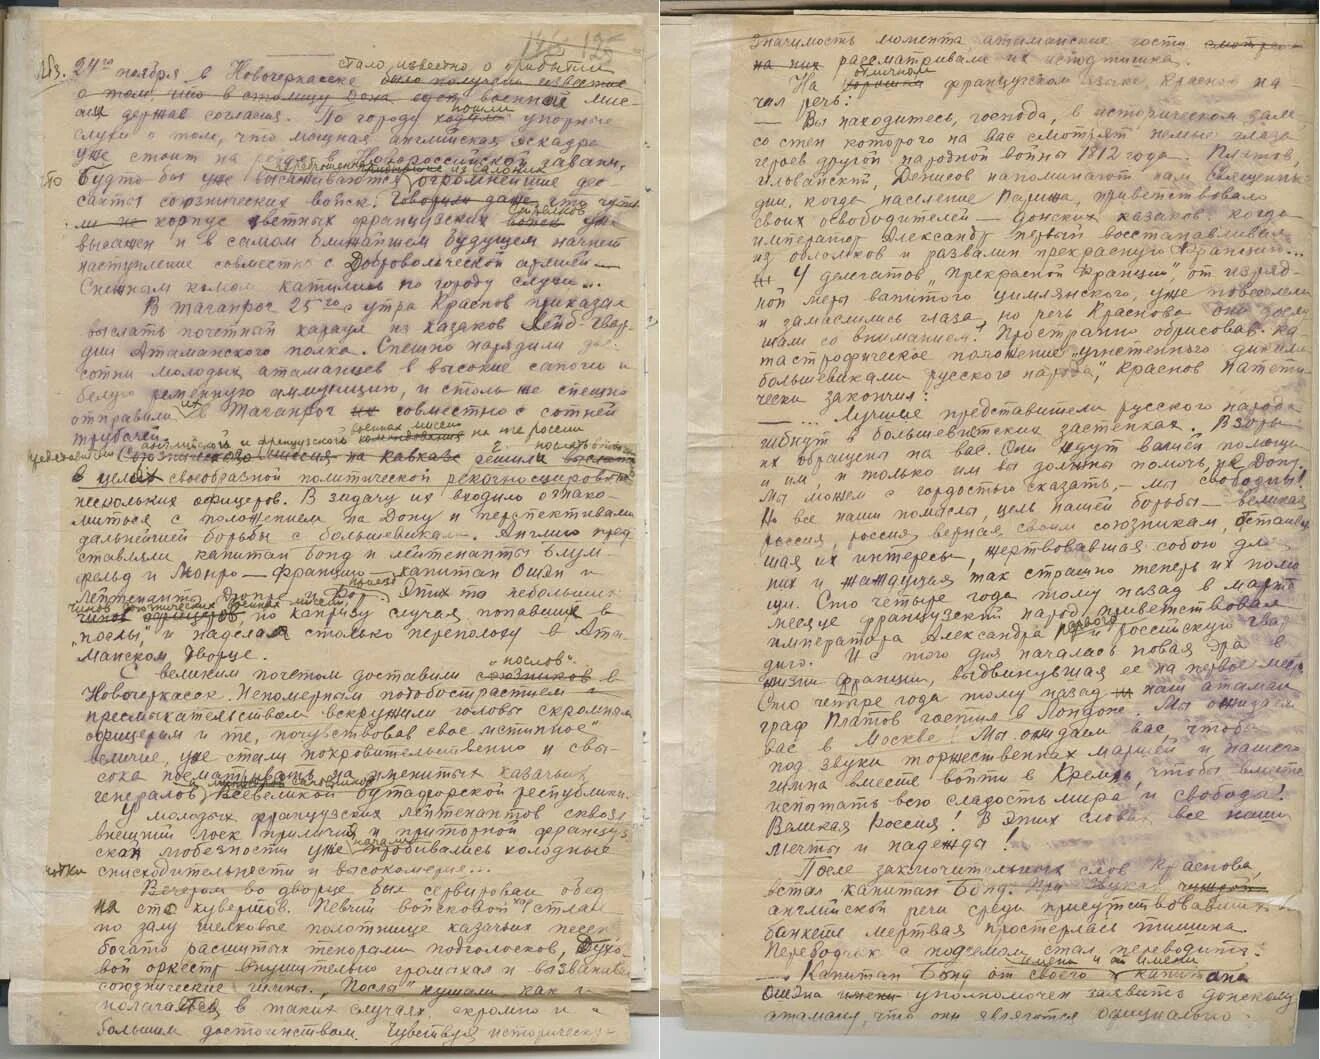 125
стало известно о прибытии
24го ноября в Новочеркасске было получено известие
о том, что в столицу Дона едет военные мис-
сия держав согласия. По городу ходили пошли упорные
слухи о том, что мощная английская эскадра
уже стоит на рейде в Новороссийской гавани,
что будто бы уже высаживаются огромнейшие дес-
санты союзнических войск. Говорили даже, что
корпус цветных французских войск стрелков уже
высажен и в самом ближайшем будущем начнет
наступление совместно с Добровольческой армией
Снежным комом катились по городу слухи...
В Таганрог 25го с утра Краснов приказал
выслать почетный караул из казаков Лейб-Гвар-
дии Атаманского полка. Спешно нарядили две
сотни молодых атаманцев в высокие сапоги и
белую ременную амуницию, и столь же спешно
отправили их в Таганрог их совместно с сотней
трубачей
английской и французской военных миссий на юге россии
Союзническая миссия на кавказе решили послать выслать
в целях своеобразной политической рекогносцировки
нескольких офицеров. В задачу их входило ознако-
миться с положением на Дону и перспективами
дальнейшей борьбы с большевикам. Англию пред-
ставляли капитан Бонд и лейтенанты Блум-
фельд и Монро — Францию — капитан Ошэн и
Лейтенанты Дюпре и Фор. Приезд Этих-то небольших
чинов союзнических военных миссий
чинов офицеров, по капризу случая попавших в
"послы", и наделал столько переполоху в Ата-
манском дворце.
С великим почетом доставили "послов" союзников в
Новочеркасск. Непомерным подобострастием и
пресмыкательством вскружили головы скромным
офицерам и те, почувствовав свое "истинное"
величие, уже стали покровительственно и свы-
сока посматривать на именитых казачьих
генералов Всевеликой бутафорской республики.
У молодых французских лейтенантов сквозь
внешний лоск приличия и приторной француз-
ской любезности уже начали пробивались холодные
нотки снисходительности и высокомерие...
Вечером во дворце был сервирован обед
на сто кувертов. Певчий войсковой хор стлал
по залу шелковые полотнище казачьих песен
богато расшитых тенорами подголосков, Духо-
вой оркестр внушительно громыхал и вызванивал
союзнические гимны. "Послы" кушали как и
полагается в таких случаях, скромно и с
большим достоинством. Чувствуя историческую
Значимость момента, атаманские гости смотрели
на них рассматривали их исподтишка.
На хорошем отличном французском языке Краснов на-
чал речь:
— Вы находитесь, господа, в историческом зале
со стен которого на вас смотрят немые глаза
героев другой народной войны 1812 года. Платов,
Иловайский, Денисов напоминают нам священные
дни, когда население Парижа приветствовало
своих освободителей — донских казаков, когда
император Александр первый восстанавливал
из обломков и развалин прекрасную Францию...
У делегатов "прекрасной Франции" от изряд-
ной меры выпитого цимлянского, уже повеселели
и замаслились глаза, но речь Краснова они дослу-
шали со вниманием. Пространно обрисовав ка-
тастрофическое положение "угнетенного дикими
большевиками русского народа", Краснов патети-
чески закончил:
— ... Лучшие представители русского народа
гибнут в большевистских застенках. Взоры
их обращены на вас. Они ждут вашей помощи
и им, и только им вы должны помочь, не Дону.
Мы можем с гордостью сказать, — мы свободны!
Но все наши помыслы, цель нашей борьбы — великая
россия, россия, верная своим союзникам, отстаивав-
шая их интересы, жертвовавшая собою для
них и жаждущая так страшно теперь их помо-
щи. Сто четыре года тому назад в марте
месяце французский народ приветствовал
императора Александра первого и Российскую гвар-
дию. И с того дня началась новая эра в
жизни франции, выдвинувшая ее на первое место
Сто четыре года тому назад наш атаман
граф Платов гостил в Лондоне. Мы ожидаем
вас в Москве! Мы ожидаем вас, чтобы
под звуки торжественных маршей и нашего
гимна вместе войти в Кремль, чтобы вместе
испытать всю сладость мира и свободы!
Великая Россия! В этих словах все наши
мечты и надежды!
После заключительных слов Краснова,
встал капитан Бонд. При звуках чужой
английской речи среди присутствовавших на
банкете мертвая простерлась тишина.
Переводчик с подъемом стал переводить:
— Капитан Бонд от своего имени и от имени капитана
Ошэна уполномочен заявить донскому
атаману, что они являются официально-